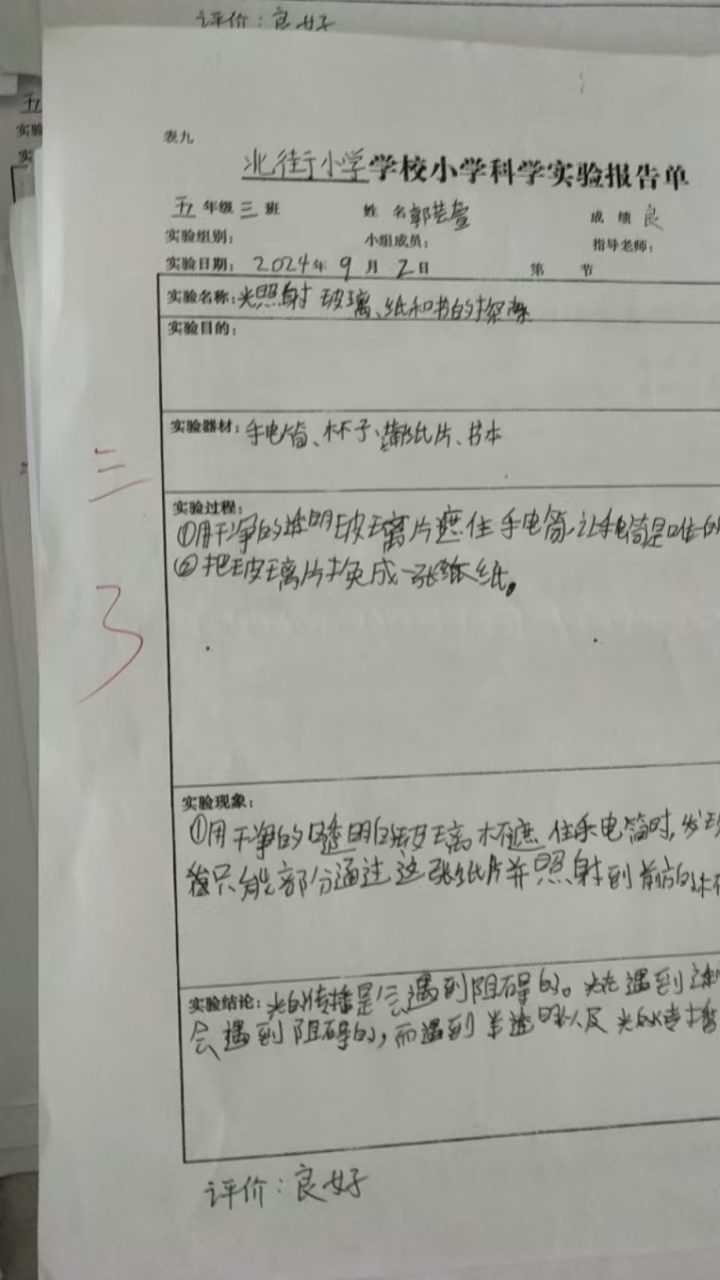 评价：良好
五
实验
实
表九
北街小学学校小学科学实验报告单
五年级三班 姓名郭芸萱 成绩良
实验组别： 小组成员： 指导老师：
实验日期：2024年9月2日 第 节
实验名称：光照射玻璃、纸和书的探索
实验目的：
实验器材：手电筒、杯子、薄纸片、书本
三
实验过程：
①用干净的透明玻璃片遮住手电筒，让手电筒是唯一的
②把玻璃片换成一张纸。
3
实验现象：
①用干净的透明的玻璃杯遮住手电筒时，发现
只能部分通过这张纸片并照射到前方的
实验结论：光的传播是会遇到阻碍的。光在遇到
会遇到阻碍的，而遇到半透明以及光的传播
评价：良好